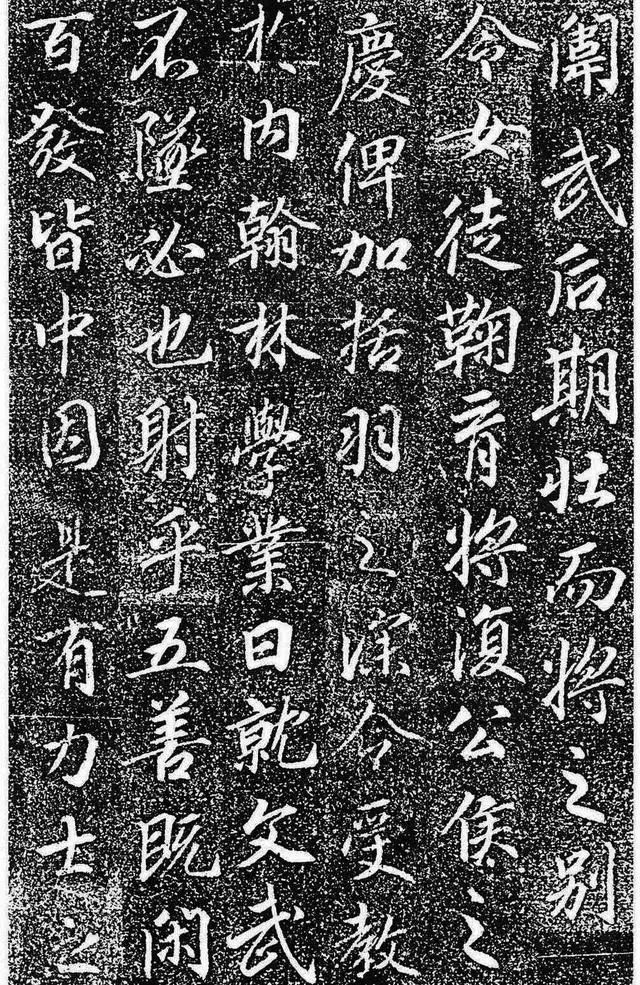 闈武后期壯而將之別
令女徒鞠育將復公侯之
慶俾加括羽之深令受教
於内翰林學業日就文武
不墜必也射乎五善既閑
百發皆中因是有力士之